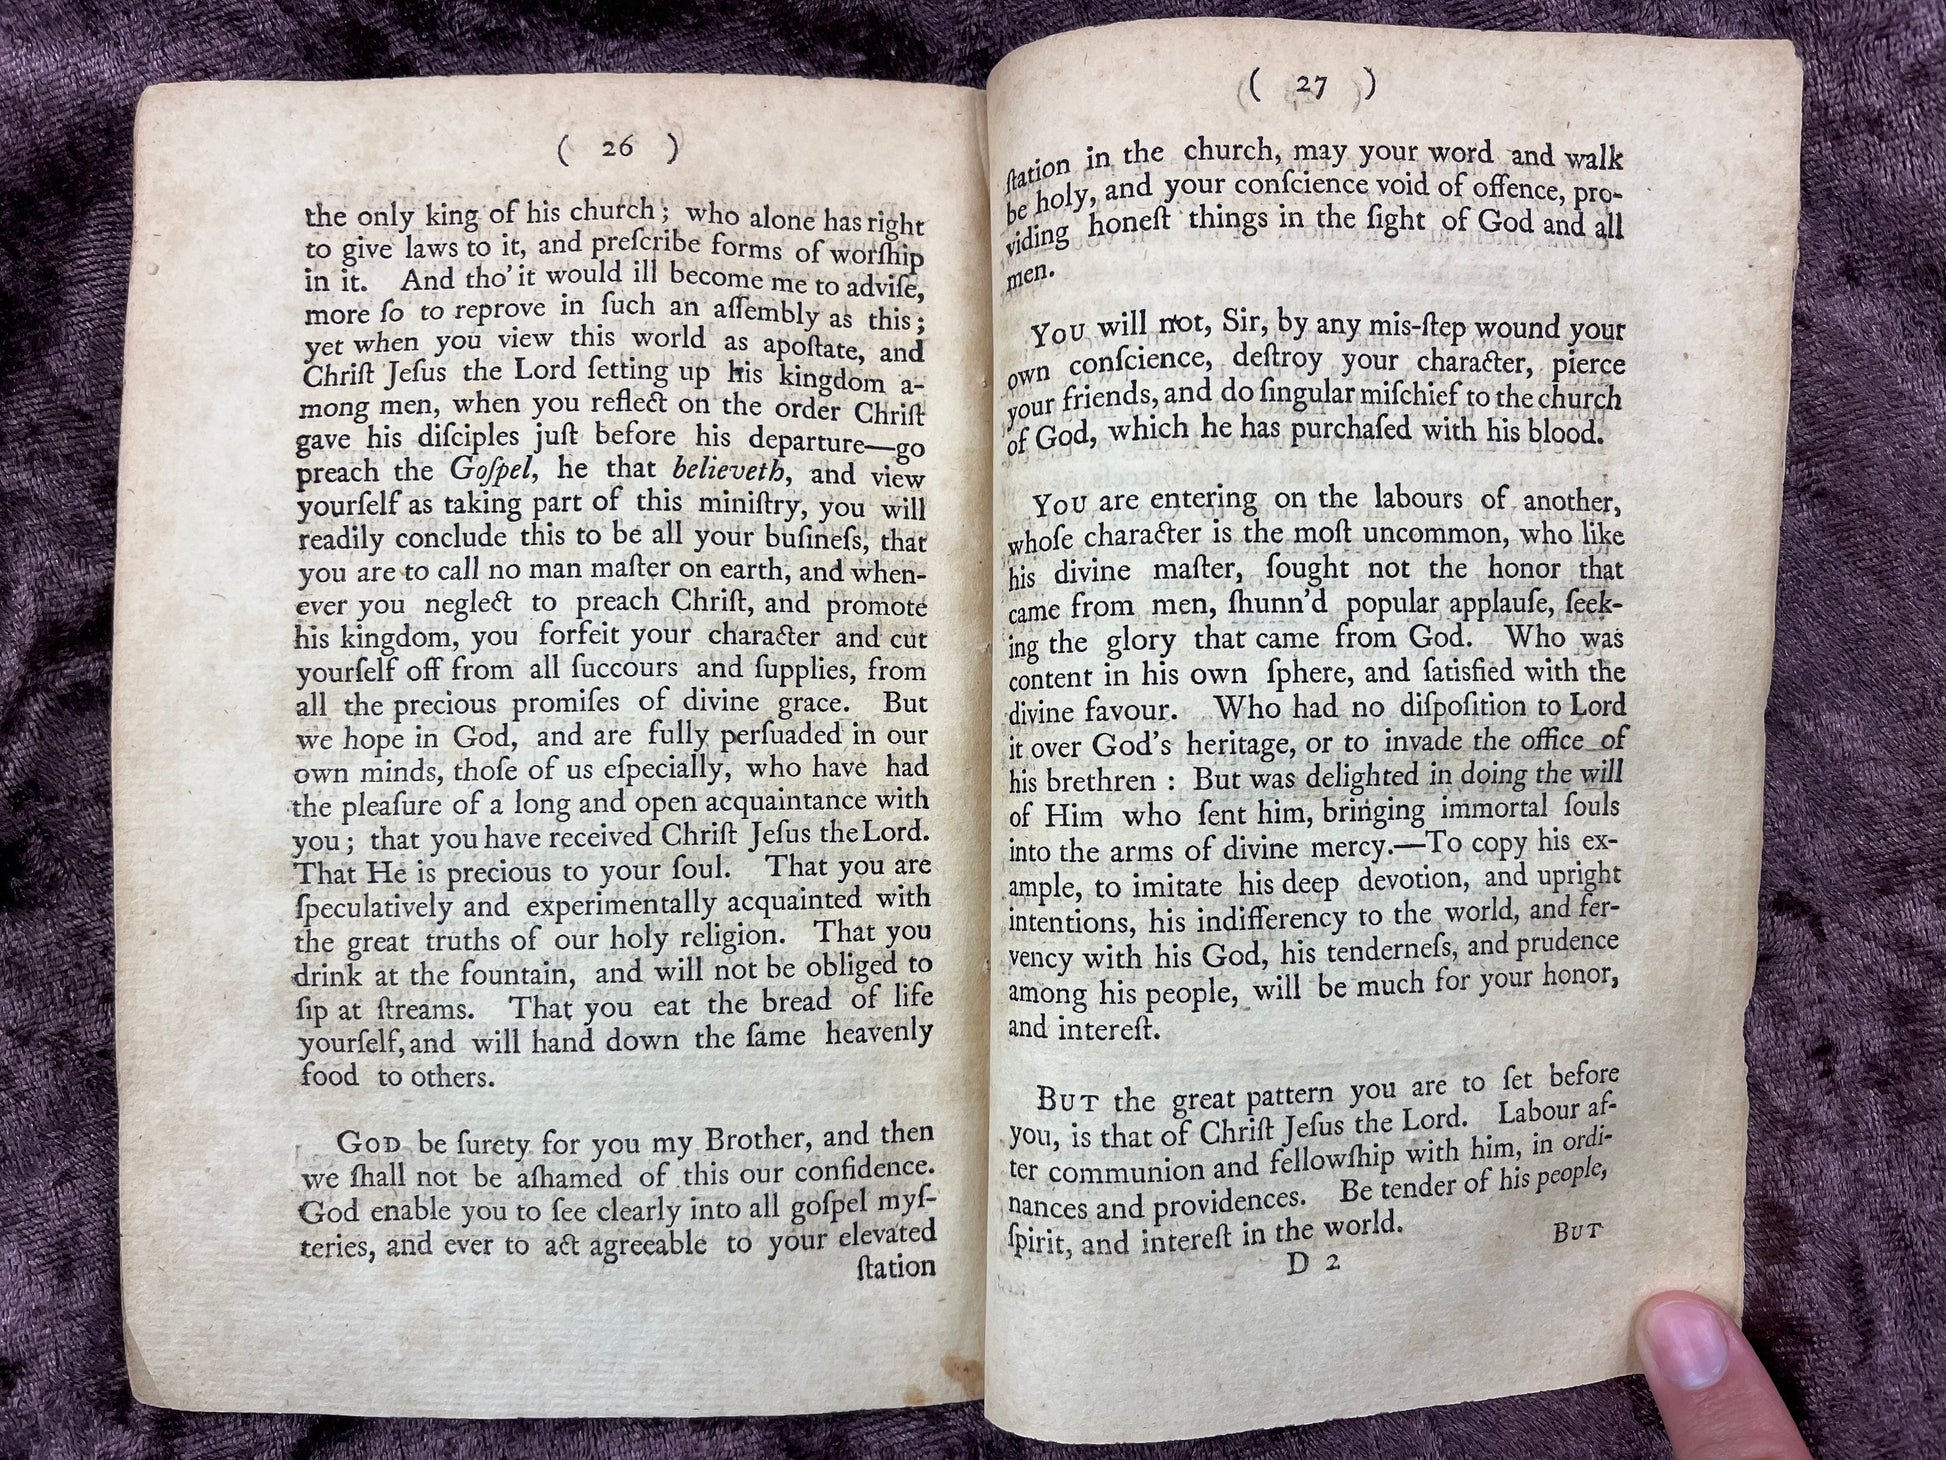 ( 26 )
the only king of his church; who alone has right
to give laws to it, and preſcribe forms of worſhip
in it. And tho' it would ill become me to adviſe,
more ſo to reprove in ſuch an aſſembly as this;
yet when you view this world as apoſtate, and
Chriſt Jeſus the Lord ſetting up his kingdom a-
mong men, when you reflect on the order Chriſt
gave his diſciples juſt before his departure—go
preach the Goſpel, he that believeth, and view
yourſelf as taking part of this miniſtry, you will
readily conclude this to be all your buſineſs, that
you are to call no man maſter on earth, and when-
ever you neglect to preach Chriſt, and promote
his kingdom, you forfeit your character and cut
yourſelf off from all ſuccours and ſupplies, from
all the precious promiſes of divine grace. But
we hope in God, and are fully perſuaded in our
own minds, thoſe of us eſpecially, who have had
the pleaſure of a long and open acquaintance with
you; that you have received Chriſt Jeſus the Lord.
That He is precious to your ſoul. That you are
ſpeculatively and experimentally acquainted with
the great truths of our holy religion. That you
drink at the fountain, and will not be obliged to
ſip at ſtreams. That you eat the bread of life
yourſelf, and will hand down the ſame heavenly
food to others.
GOD be ſurety for you my Brother, and then
we ſhall not be aſhamed of this our confidence.
God enable you to ſee clearly into all goſpel myſ-
teries, and ever to act agreeable to your elevated
ſtation
( 27 )
ſtation in the church, may your word and walk
be holy, and your conſcience void of offence, pro-
viding honeſt things in the ſight of God and all
men.
YOU will not, Sir, by any mis-ſtep wound your
own conſcience, deſtroy your character, pierce
your friends, and do ſingular miſchief to the church
of God, which he has purchaſed with his blood.
YOU are entering on the labours of another,
whoſe character is the moſt uncommon, who like
his divine maſter, ſought not the honor that
came from men, ſhunn'd popular applauſe, ſeek-
ing the glory that came from God. Who was
content in his own ſphere, and ſatisfied with the
divine favour. Who had no diſpoſition to Lord
it over God's heritage, or to invade the office of
his brethren : But was delighted in doing the will
of Him who ſent him, bringing immortal ſouls
into the arms of divine mercy.—To copy his ex-
ample, to imitate his deep devotion, and upright
intentions, his indifferency to the world, and fer-
vency with his God, his tenderneſs, and prudence
among his people, will be much for your honor,
and intereſt.
BUT the great pattern you are to ſet before
you, is that of Chriſt Jeſus the Lord. Labour af-
ter communion and fellowſhip with him, in ordi-
nances and providences. Be tender of his people,
ſpirit, and intereſt in the world.
D 2 BUT